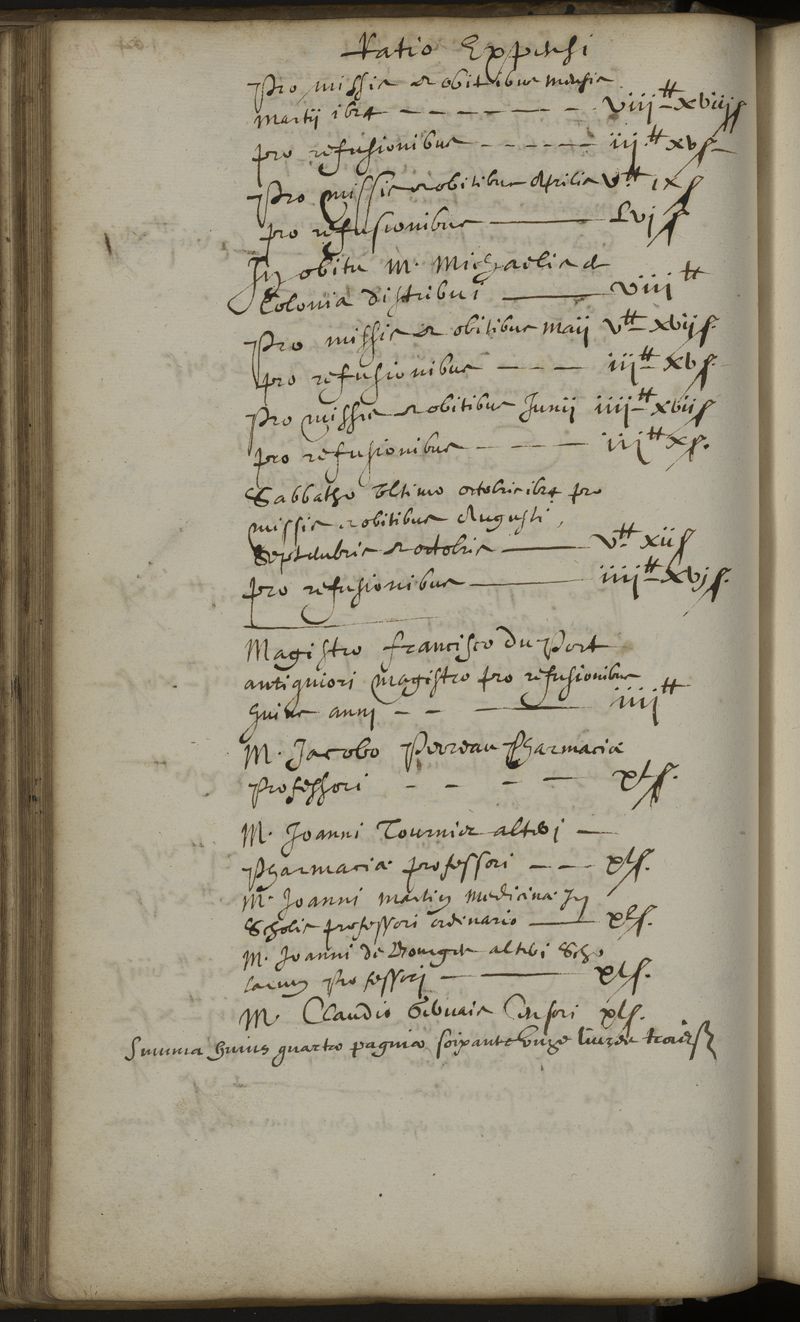 Ratio Expensi
Pro missis et obitibus mensis
martij ibid. – – – – – – viii ₶ xviij s
pro refusionibus – – – – – – iij ₶ xv s
Pro missis et obitibus Aprilis v ₶ ix s
pro refusionibus —— lvj s
In obitu M. Michaelis a
Colonia distribui —— viii ₶
Pro missis et obitibus maij v ₶ xvij s.
pro refusionibus – – – iij ₶ xv s.
Pro missis et obitibus Junij iiii ₶ xvii s
pro refusionibus – – – – iii ₶ x s.
Sabbatho ultimo octobris pro
missis et obitibus Augusti,
Septembris et octobris —— v ₶ xii s
pro refusionibus —— iiii ₶ xvj s.
Magistro francisco du Port
antiquiori magistro pro refusionibus
huius anni – – —— iiii ₶
M. Jacobo Perreau Pharmaciæ
Professori – – – – xl s.
M. Joanni Tournier alteri —
Pharmaciæ professori – – – xl s.
M. Joanni martin medicinæ In
Scholis professori ordinario —— xl s.
M. Joanni de Bourges alteri Scho
larum Professori —— xl s.
M. Claudio Gervais Censori xl s.
Summa huius quartæ paginæ soixante unze livres